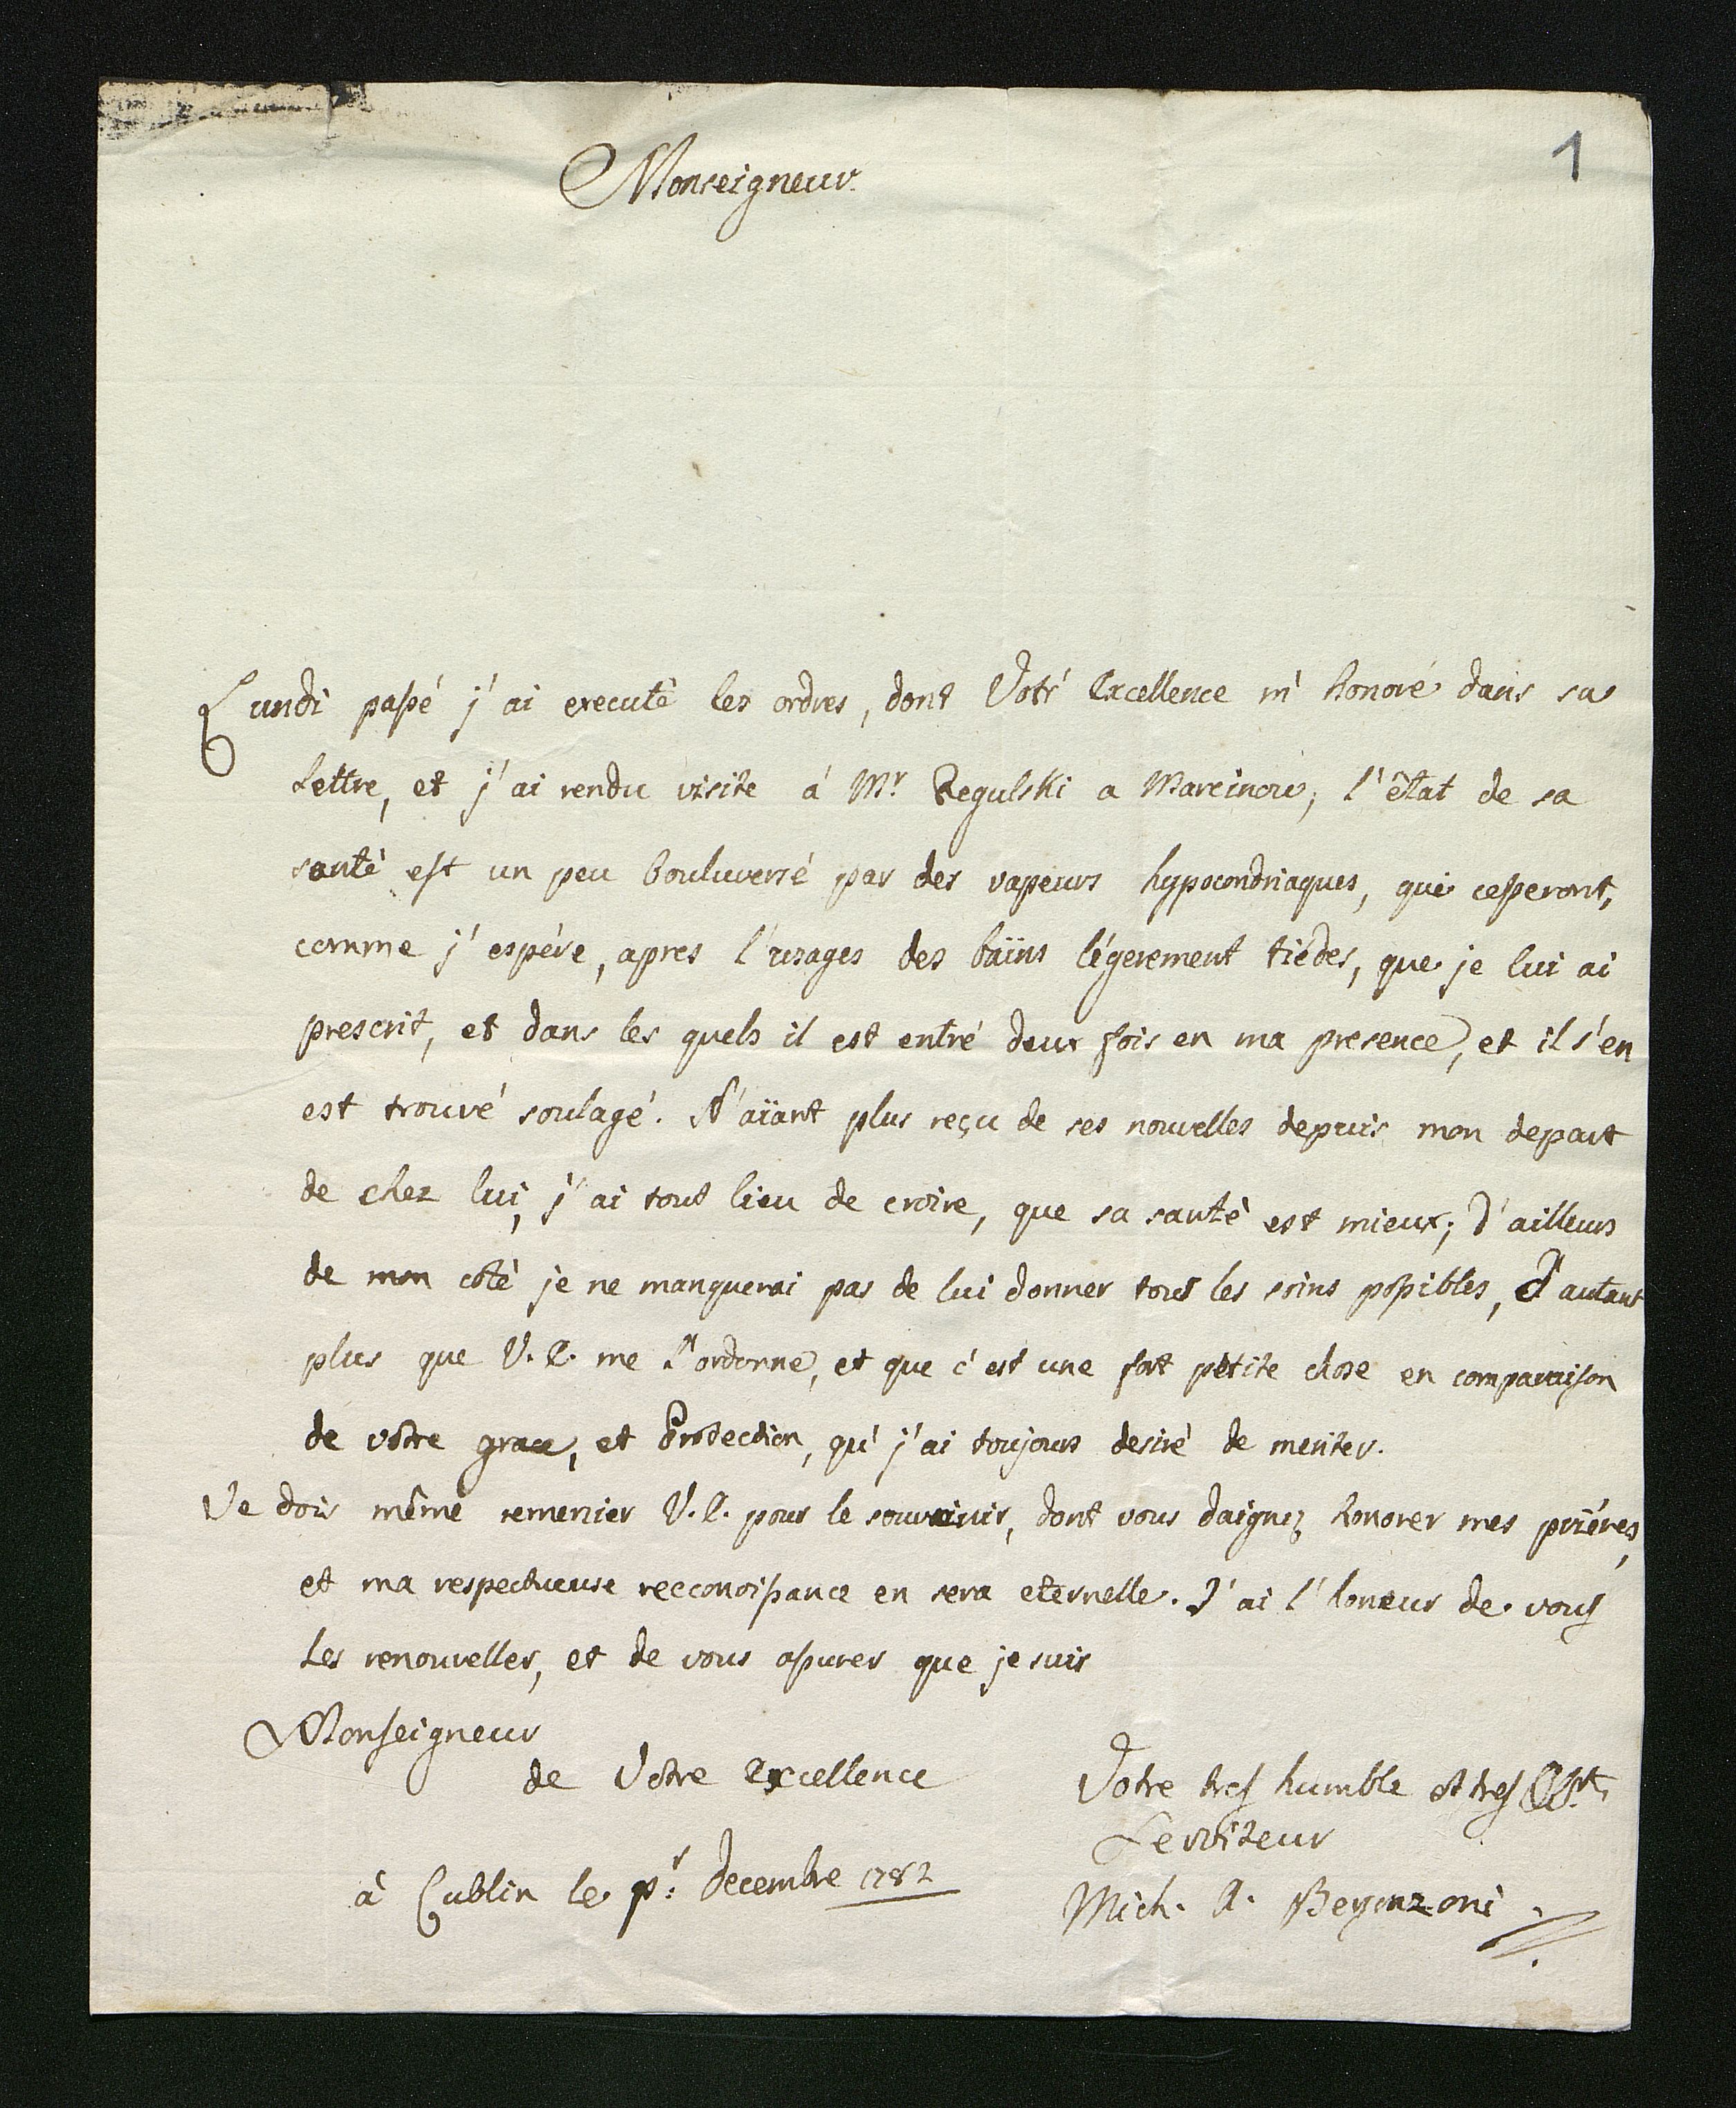 1
Monseigneur
Lundi passé j'ai executè les ordres, dont Votr' Excellence m'honoré dans sa
Lettre, et j'ai rendu visite á Mr. Regulski a Marcinow, l'êtat de sa
santè est un peu bouluversé par des vapeurs hypocondriaques, qui cesseront,
comme j'espére, apres l'usages des baïns légerement tiédes, que je lui ai
prescrit, et dans les quels il est entré deux fois en ma presence, et il s'en
est trouvé soulagé. N'aïant plus reçu de ses nouvelles depuis mon depart
de chez lui, j'ai tout lieu de croire, que sa santè est mieux; d'ailleurs
de mon côtè je ne manquerai pas de lui donner tous les soins possibles, d'autant
plus que V. E. me l'ordonne, et que c'est une fort petite chose en comparaison
de vôtre grace, et Protection, qu'j'ai toujours desiré de meriter.
Je dois même remerier V. E. pour le souvenir, dont vous daignez honorer mes priéres,
et ma respectueuse recconoissance en sera eternelle. J'ai l'honeur de vous
les renouveller, et de vous assurer que je suis
Monseigneur
de Votre Excellence
Votre tres humble et tres Obt.
Serviteur
à Lublin le pr: Decembre 1782
Mich. A.